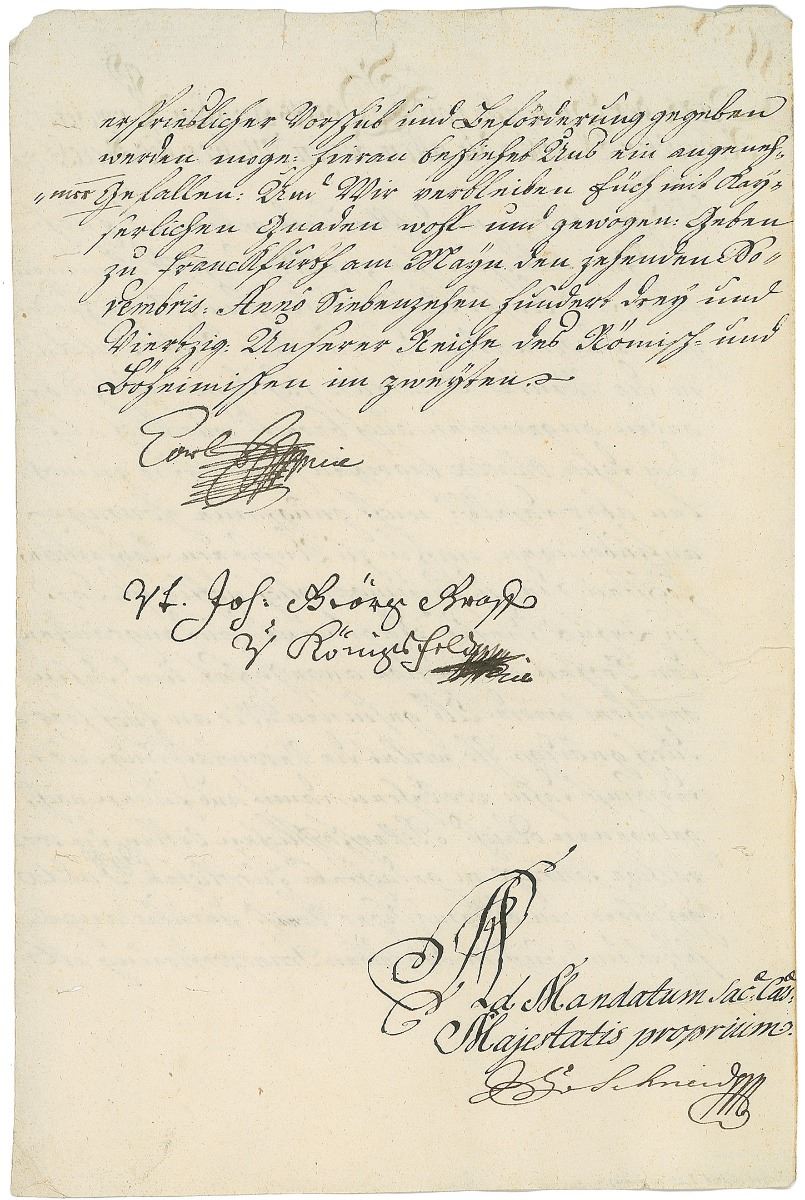 ersprieslicher Vorschub und Beförderung gegeben
werden möge: hieran beschiehet Uns ein angeneh-
„mes Gefallen: Und Wir verbleiben Euch mit Kay-
serlichen Gnaden wohl- und gewogen: Geben
zu Franckfurth am Mayn den zehenden No-
vembris: Anno Siebenzehen hundert drey und
Viertzig: Unserer Reiche des Römisch- und
Böheimischen im zweyten.
Carl
Vt. Joh: Georg Graff
v Königsfeld
Ad Mandatum Sac.ae Caes.ae
Majestatis proprium.